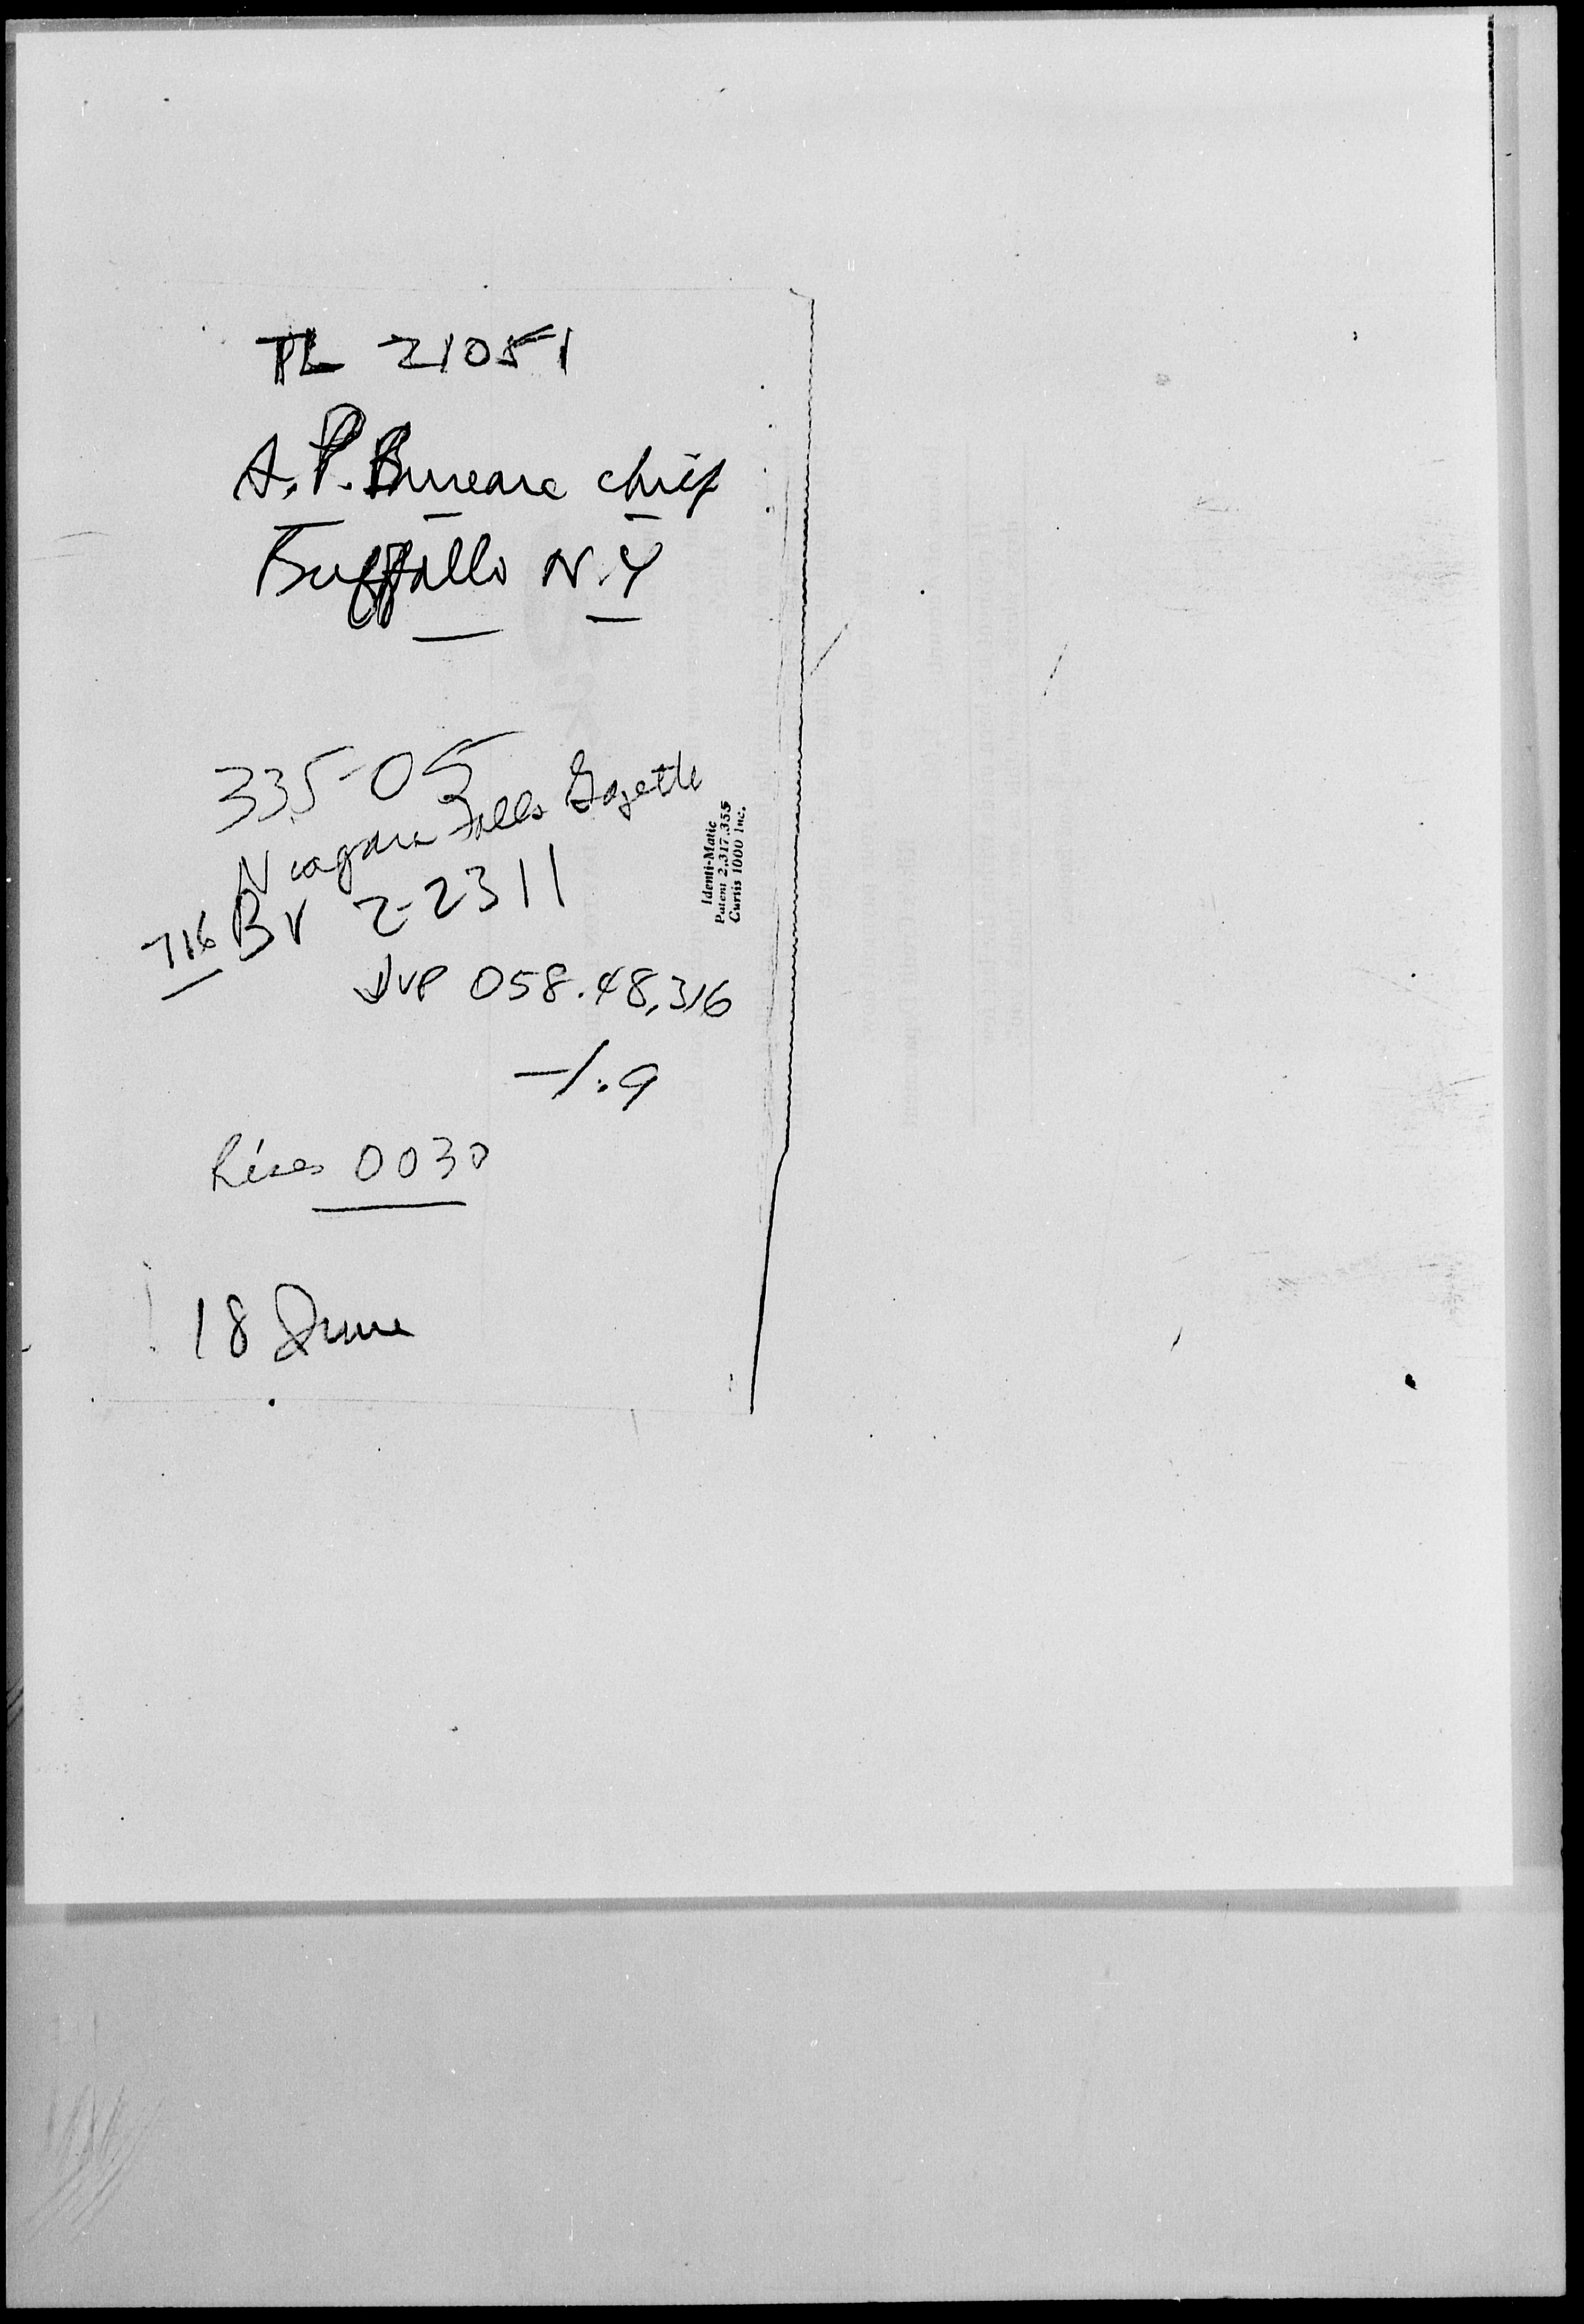 TL 21051
A.P. Bureau chief
Buffallo N.Y
335-05
Niagara Falls Gazette
716 BV 2-2311
Identi-Matic
Patent 2,317,355
Curtis 1000 Inc.
JUP 058.48,316
-1.9
Rises 0030
18 June